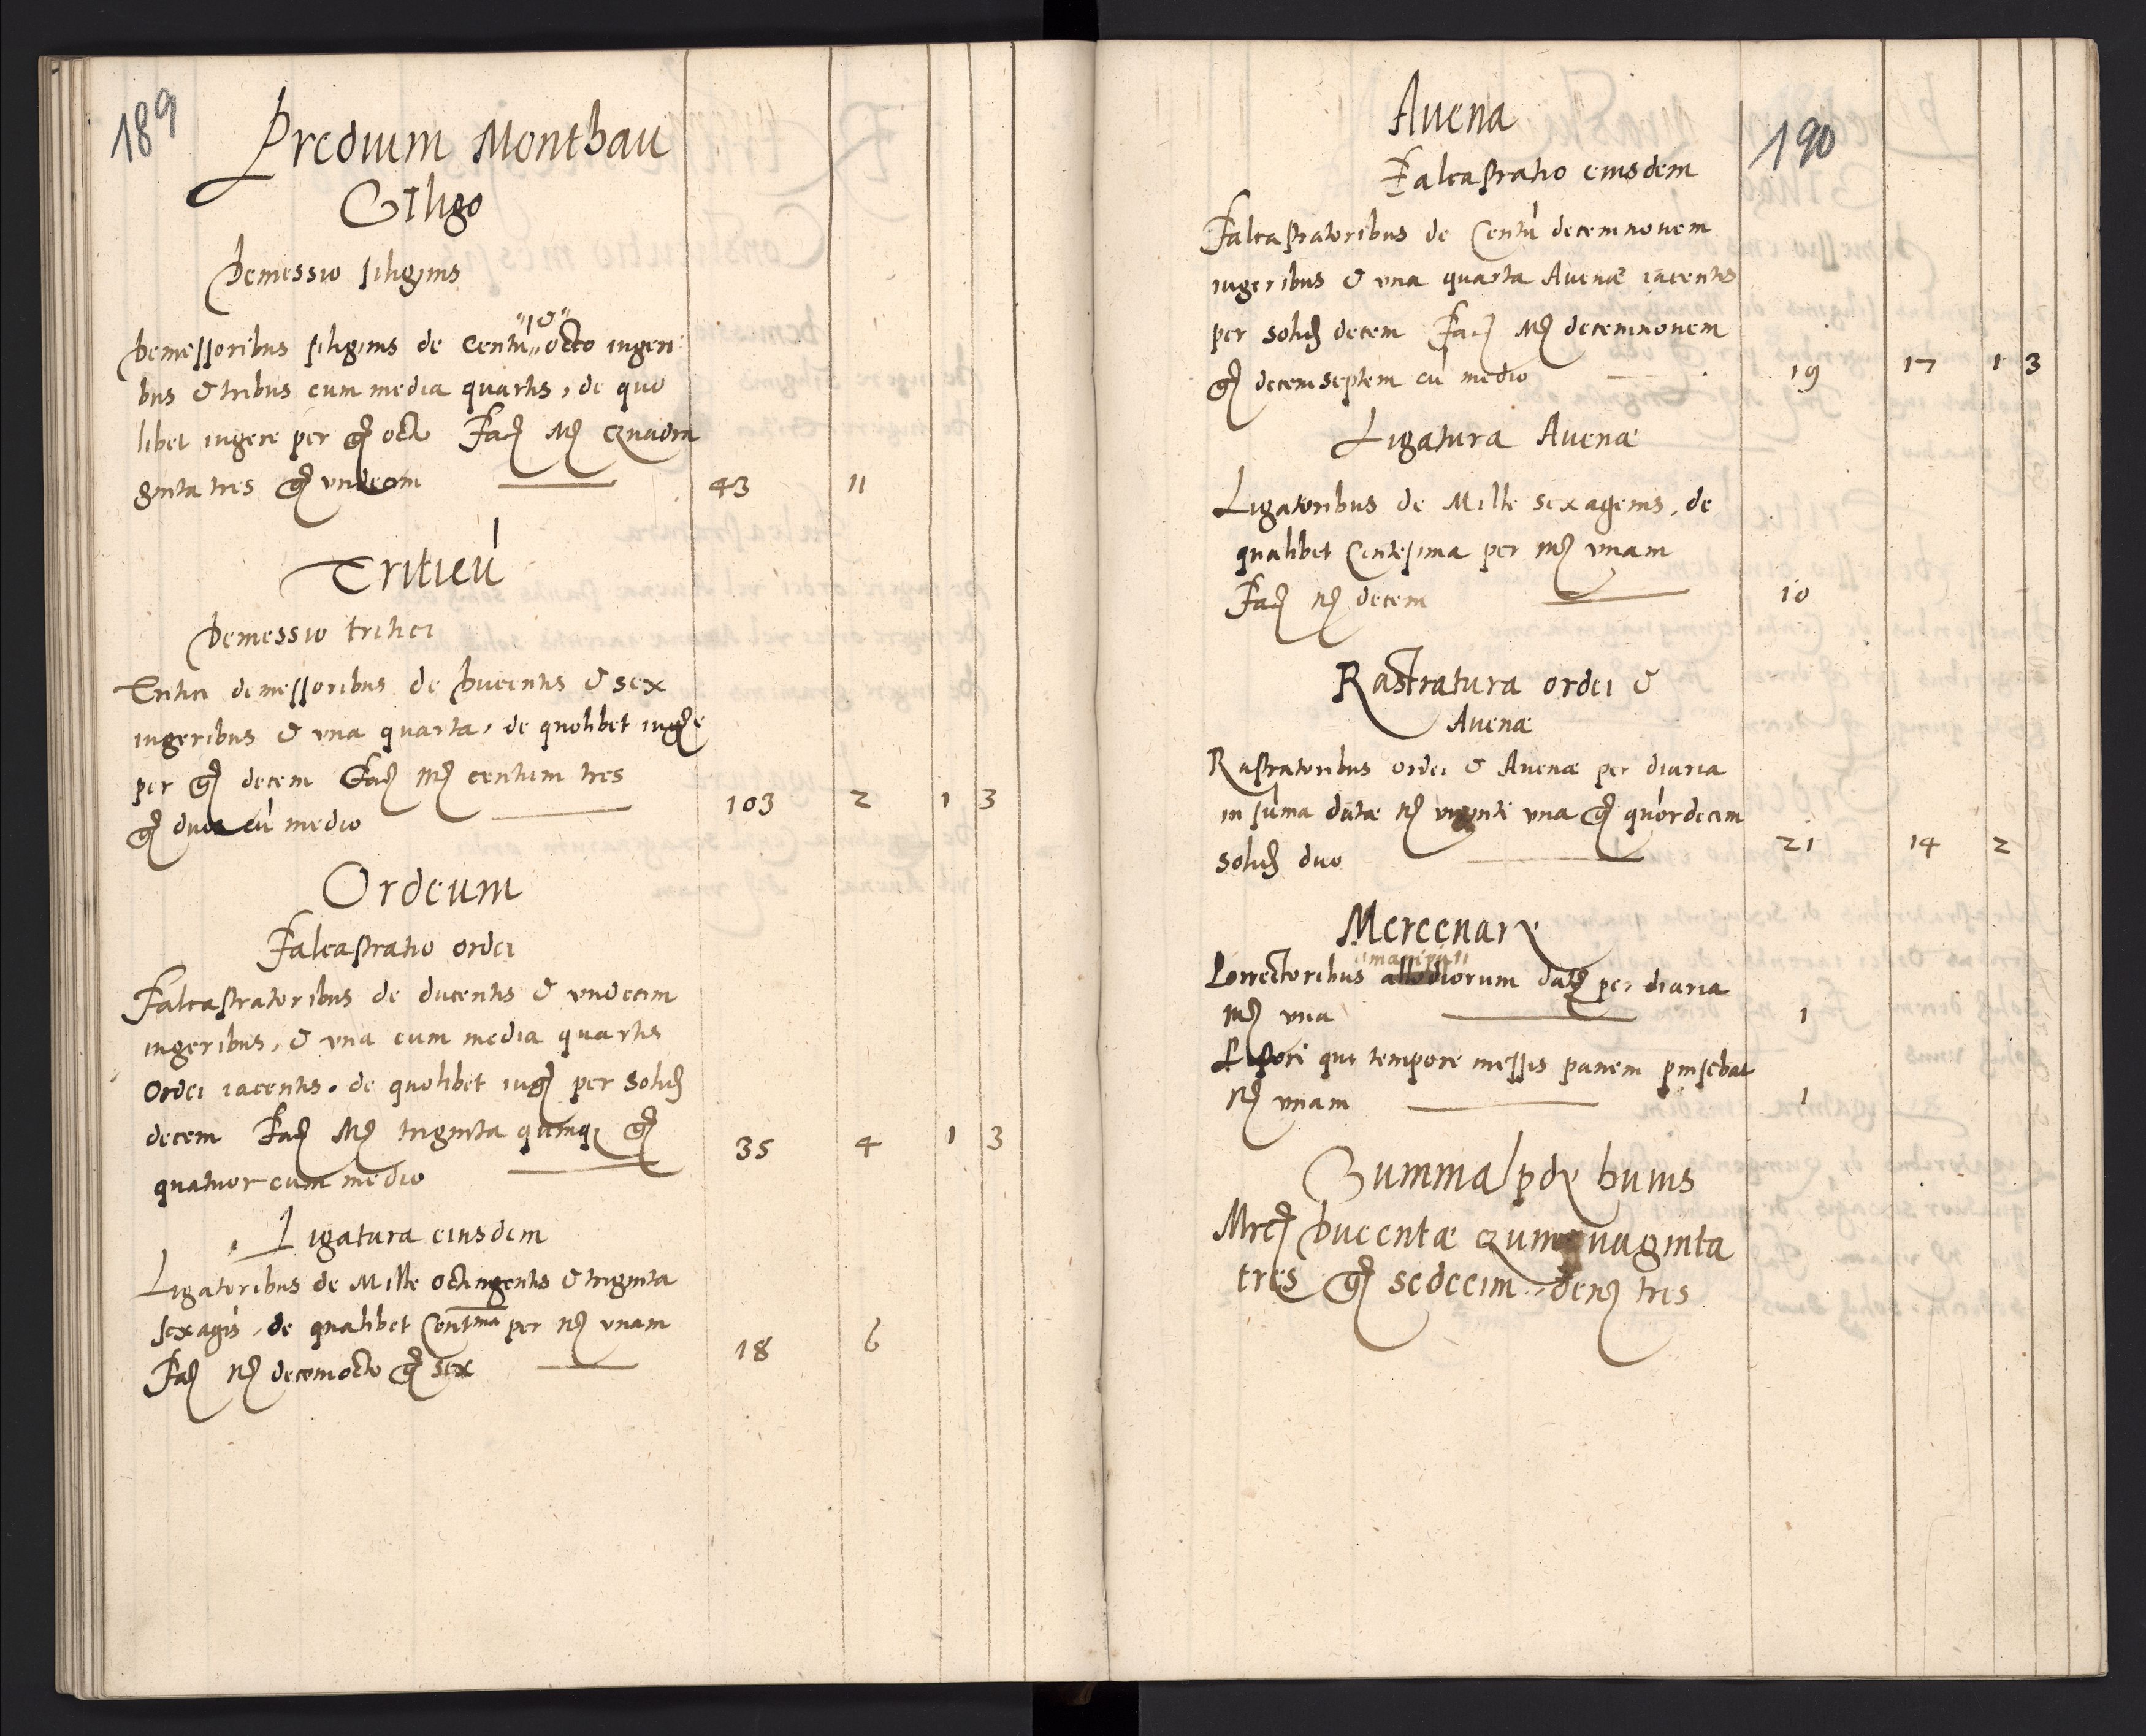 189
Predium Monthau
Siligo
Demessio siliginis
"&"
Demessoribus siliginis de Centu" octo iugeri
bus & tribus cum media quartis, de quo
libet iugere per gȷ octo Facȷ Mȷ Quadra
ginta tres gȷ vndecim 43 11
Triticū
Demessio tritici
Tritici demessoribus de Ducentis & sex
iugeribus & vna quarta, de quolibet iugȷe
per gȷ decem Facȷ Mȷ centum tres
gȷ duos cū medio 103 2 1 3
Ordeum
Falcastratio ordei
Falcastratoribus de ducentis & vndecim
iugeribus, & vna cum media quartis
Ordei iacentis. de quolibet iugȷ per Solidȷ
decem Facȷ Mȷ triginta quinqȝ gȷ
quatuor cum medio 35 4 1 3
Ligatura eiusdem
Ligatoribus de Mille octingentis & triginta
sexagis, de qualibet Centma per Mȷ vnam
Facȷ Mȷ decemocto gȷ sex 18 6
190
Auena
Falcastratio eiusdem
Falcastratoribus de Centū decemnouem
iugeribus & vna quarta Auenæ iacentis
per Solidȷ decem Facȷ Mȷ decemnouem
gȷ decemseptem cū medio 19 17 1 3
Ligatura Auenæ
Ligatoribus de Mille sexagenis, de
qualibet Centesima per Mȷ vnam
Facȷ Mȷ decem 10
Rastratura ordei &
Auenæ
Rastratoribus ordei & Auenæ per diaria
in sūma datæ Mȷ viginti vna gȷ quordecim
Solidȷ duo 21 14 2
Mercenarÿ
"manipul"
Correctoribus diorum datȷ per diaria
Mȷ vna 1
Pistori qui tempore messis panem pinsebat
Mȷ vnam 1
Summa pdÿ huius
Mrcȷ Ducentæ Quinquaginta
tres gȷ sedecim, denȷ tres